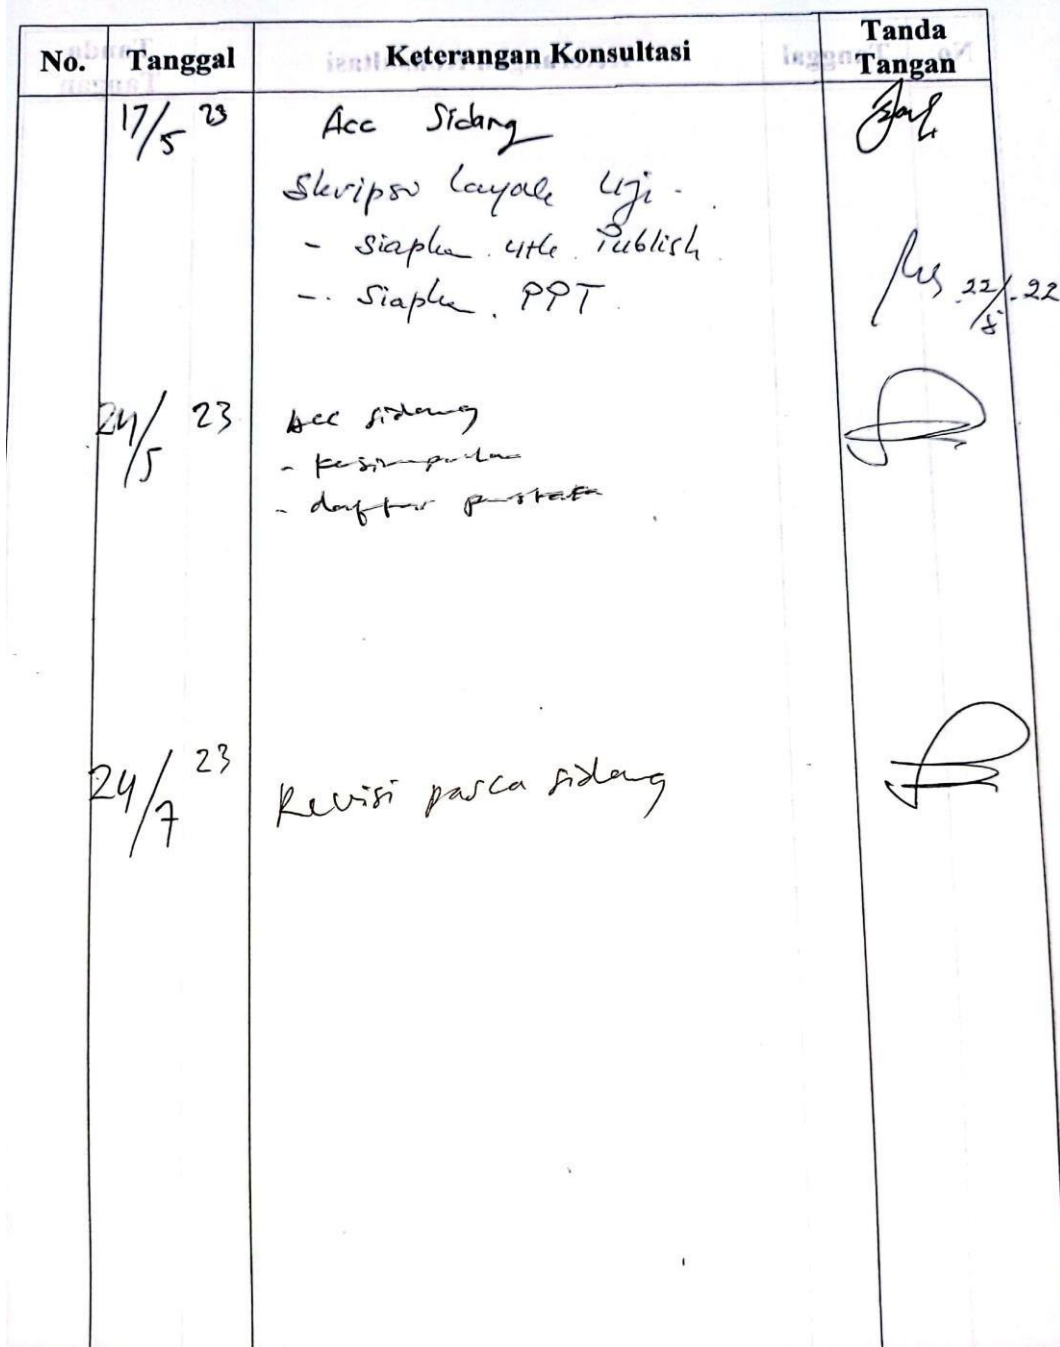 No. Tanggal Keterangan Konsultasi Tanda Tangan
17/5 23 Acc Sidang
Skripsi layak Uji.
- Siapka utk Publish
- Siapka PPT
22/ 22
24/5 23 Acc sidang
- kesimpulan
- daftar pustaka
24/7 23 Revisi pasca sidang